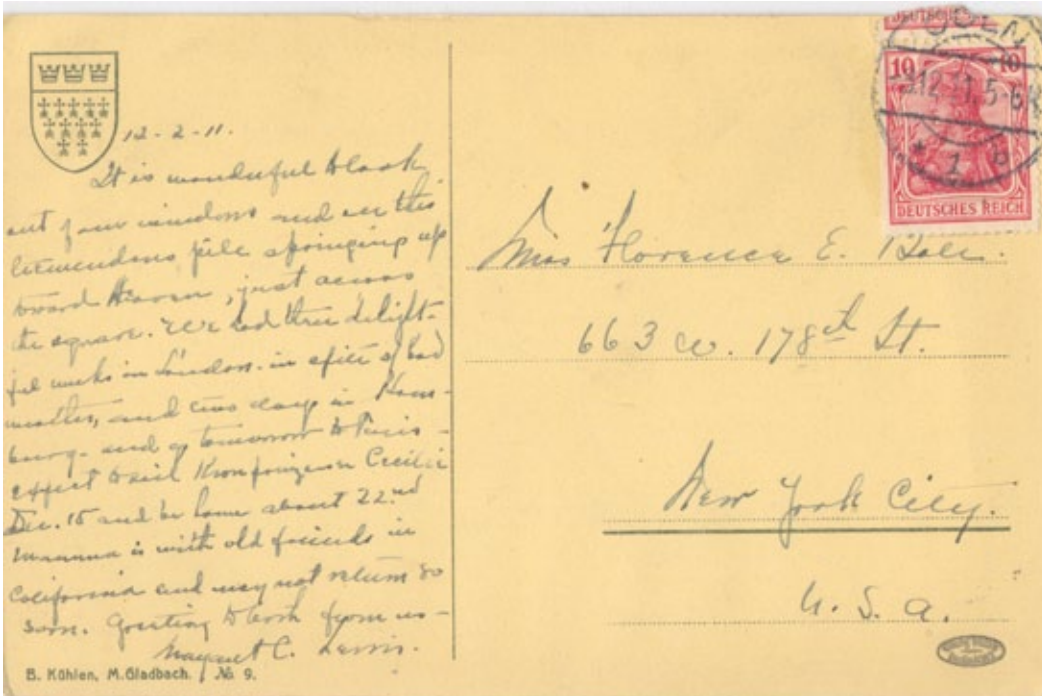 12-2-11.
It is wonderful to look
out of our windows and see this
tremendous pile springing up
toward Heaven, just across
the square. We had three delight-
ful weeks in London. in spite of bad
weather, and two days in Ham-
burg. and go tomorrow to Paris -
expect to sail Kronprinzessin Cecilie
Dec. 15 and be home about 22nd
Mamma is with old friends in
California and may not return so
soon. Greeting to both from us -
Margaret C. Lewis.
B. Kühlen, M.Gladbach. No 9.
CÖLN
12.11. 5-6N
* 1 b
DEUTSCHES
10 10
DEUTSCHES REICH
Miss Florence E.
663 W. 178th St.
New York City.
U. S. A.